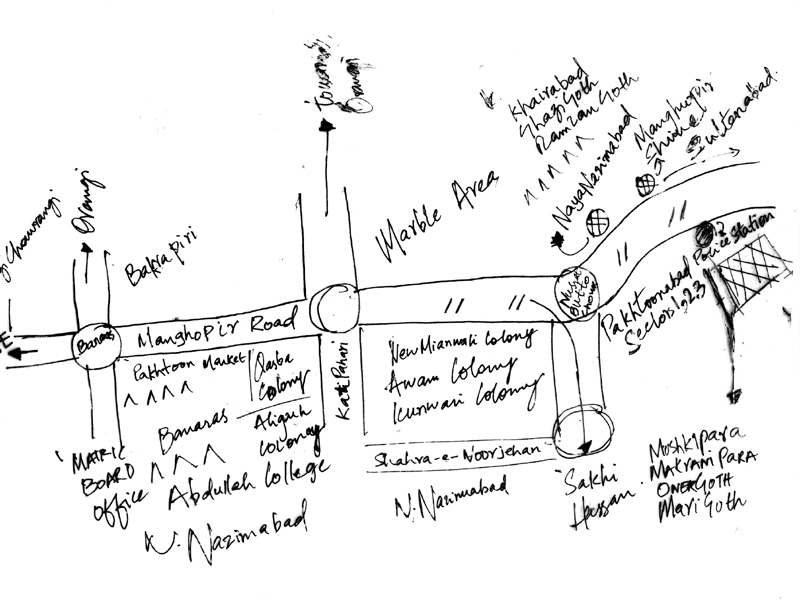 Towards
Khairabad
Ghazi Goth
Ramzan Goth
Naya Nazimabad
Manghopir
Shrine
Sultanabad.
Orangi
Bakrapiri
Marble Area
Police Station
2
Banaras
Manghopir Road
Kati Pahari
Pakhtoonabad
Sectors 1,2,3
Pakhtoon Market
Qasba
Colony
Banaras
Aligarh
Colony
New Mianwali Colony
Awam Colony
Kunwari Colony
MATRIC
BOARD
Office
Abdullah College
N. Nazimabad
Shahra-e-Noorjehan
N. Nazimabad
Sakhi
Hassan.
Moshkipara
Makrani PARA
OMER GOTH
Mari Goth